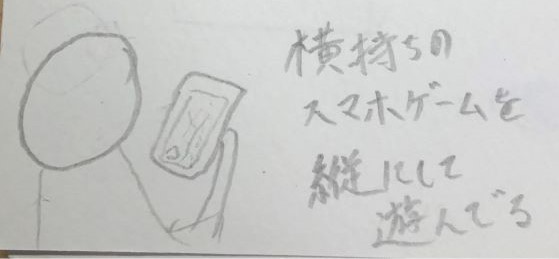 横持ちの
スマホゲームを
縦にして
遊んでる